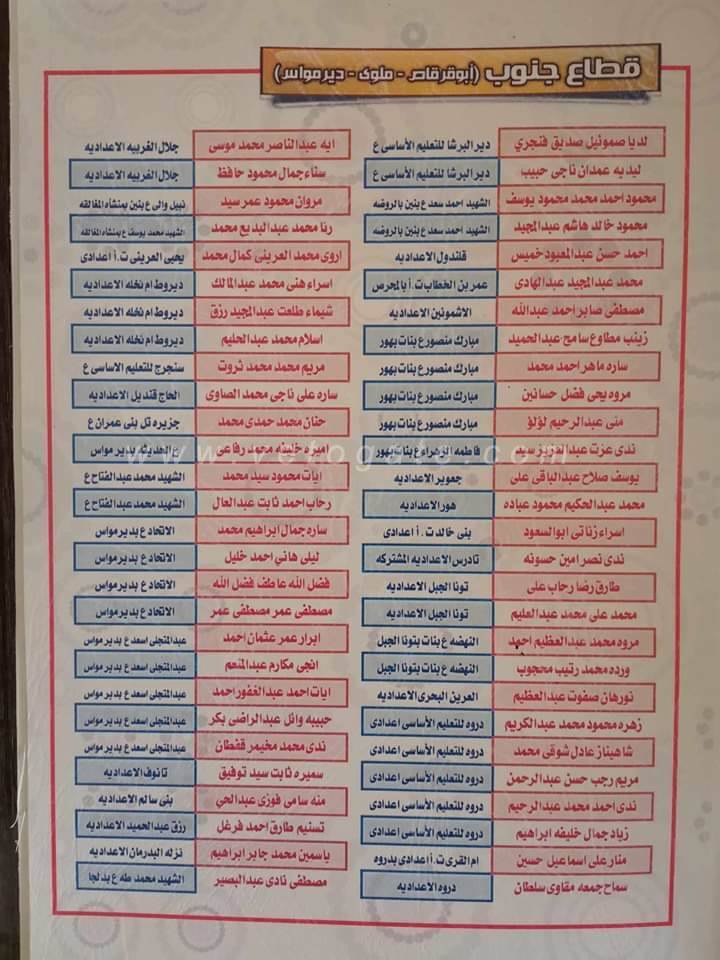 قطاع جنوب (أبوقرقاص - ملوى - ديرمواس)
لديا صموئيل صديق فنجري دير البرشا للتعليم الأساسى ع
ليديه عمدان ناجى حبيب دير البرشا للتعليم الأساسى ع
محمود احمد محمد محمود يوسف الشهيد احمد سعد ع بنين بالروضه
محمود خالد هاشم عبدالمجيد الشهيد احمد سعد ع بنين بالروضه
احمد حسن عبدالمعبود خميس قلندول الاعداديه
محمد عبدالمجيد عبدالهادى عمر بن الخطاب ت. أ بالمحرص
مصطفى صابر احمد عبدالله الاشمونين الاعداديه
زينب مطاوع سامح عبدالحميد مبارك منصور ع بنات بهور
ساره ماهر احمد محمد مبارك منصور ع بنات بهور
مروه يحى فضل حسانين مبارك منصور ع بنات بهور
منى عبدالرحيم لؤلؤ مبارك منصور ع بنات بهور
ندى عزت عبدالعزيز سيد فاطمه الزهراء ع بنات بهور
يوسف صلاح عبدالباقى على جعوير الاعداديه
محمد عبدالحكيم محمود عباده هور الاعداديه
اسراء زناتى ابوالسعود بنى خالد ت. أ اعدادى
ندى نصر امين حسونه تادرس الاعداديه المشتركه
طارق رضا رحاب على تونا الجبل الاعداديه
محمد على محمد عبدالعليم تونا الجبل الاعداديه
مروه محمد عبدالعظيم احمد النهضه ع بنات بتونا الجبل
ورده محمد رتيب محجوب النهضه ع بنات بتونا الجبل
نورهان صفوت عبدالعظيم العرين البحرى الاعداديه
زهره محمود محمد عبدالكريم دروه للتعليم الأساسى اعدادى
شاهيناز عادل شوقى محمد دروه للتعليم الأساسى اعدادى
مريم رجب حسن عبدالرحمن دروه للتعليم الأساسى اعدادى
ندى احمد محمد عبدالرحيم دروه للتعليم الأساسى اعدادى
زياد جمال خليفه ابراهيم دروه للتعليم الأساسى اعدادى
منار على اسماعيل حسين ام القرى ت. أ اعدادى بدروه
سماح جمعه مقاوى سلطان دروه الاعداديه
ايه عبدالناصر محمد موسى جلال الغربيه الاعداديه
سناء جمال محمود حافظ جلال الغربيه الاعداديه
مروان محمود عمر سيد نبيل والى ع بنين بمنشاه المغالقه
رنا محمد عبدالبديع محمد الشهيد محمد يوسف ع بمنشاه المغالقه
اروى محمد العرينى كمال محمد يحيى العرينى ت. أ اعدادى
اسراء هنى محمد عبدالمالك ديروط ام نخله الاعداديه
شيماء طلعت عبدالمجيد رزق ديروط ام نخله الاعداديه
اسلام محمد عبدالحليم ديروط ام نخله الاعداديه
مريم محمد محمد ثروت سنجرج للتعليم الأساسى ع
ساره على ناجى محمد الصاوى الحاج قنديل الاعداديه
حنان محمد حمدى محمد جزيره تل بنى عمران ع
اميره خليفه محمد رفاعى ع الحديثه بديرمواس
ايات محمود سيد محمد الشهيد محمد عبدالفتاح ع
رحاب احمد ثابت عبدالعال الشهيد محمد عبدالفتاح ع
ساره جمال ابراهيم محمد الاتحاد ع بديرمواس
ليلى هاني احمد خليل الاتحاد ع بديرمواس
فضل الله عاطف فضل الله الاتحاد ع بديرمواس
مصطفى عمر مصطفى عمر الاتحاد ع بديرمواس
ابرار عمر عثمان احمد عبدالمتجلى اسعد ع بديرمواس
انجى مكارم عبدالمنعم عبدالمتجلى اسعد ع بديرمواس
ايات احمد عبدالغفور احمد عبدالمتجلى اسعد ع بديرمواس
حبيبه وائل عبدالراضى بكر عبدالمتجلى اسعد ع بديرمواس
ندى محمد مخيمر قفطان عبدالمتجلى اسعد ع بديرمواس
سميره ثابت سيد توفيق تانوف الاعداديه
منه سامى فوزى عبدالحي بنى سالم الاعداديه
تسنيم طارق احمد فرغل رزق عبدالحميد الاعداديه
ياسمين محمد جابر ابراهيم نزله البدرمان الاعداديه
مصطفى نادى عبدالبصير الشهيد محمد طه ع بدلجا
www.vetogate.com